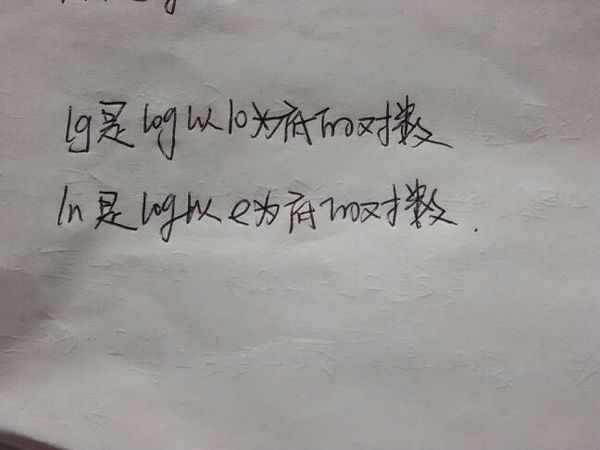 lg是log以10为底m对数
ln是log以e为底m对数.